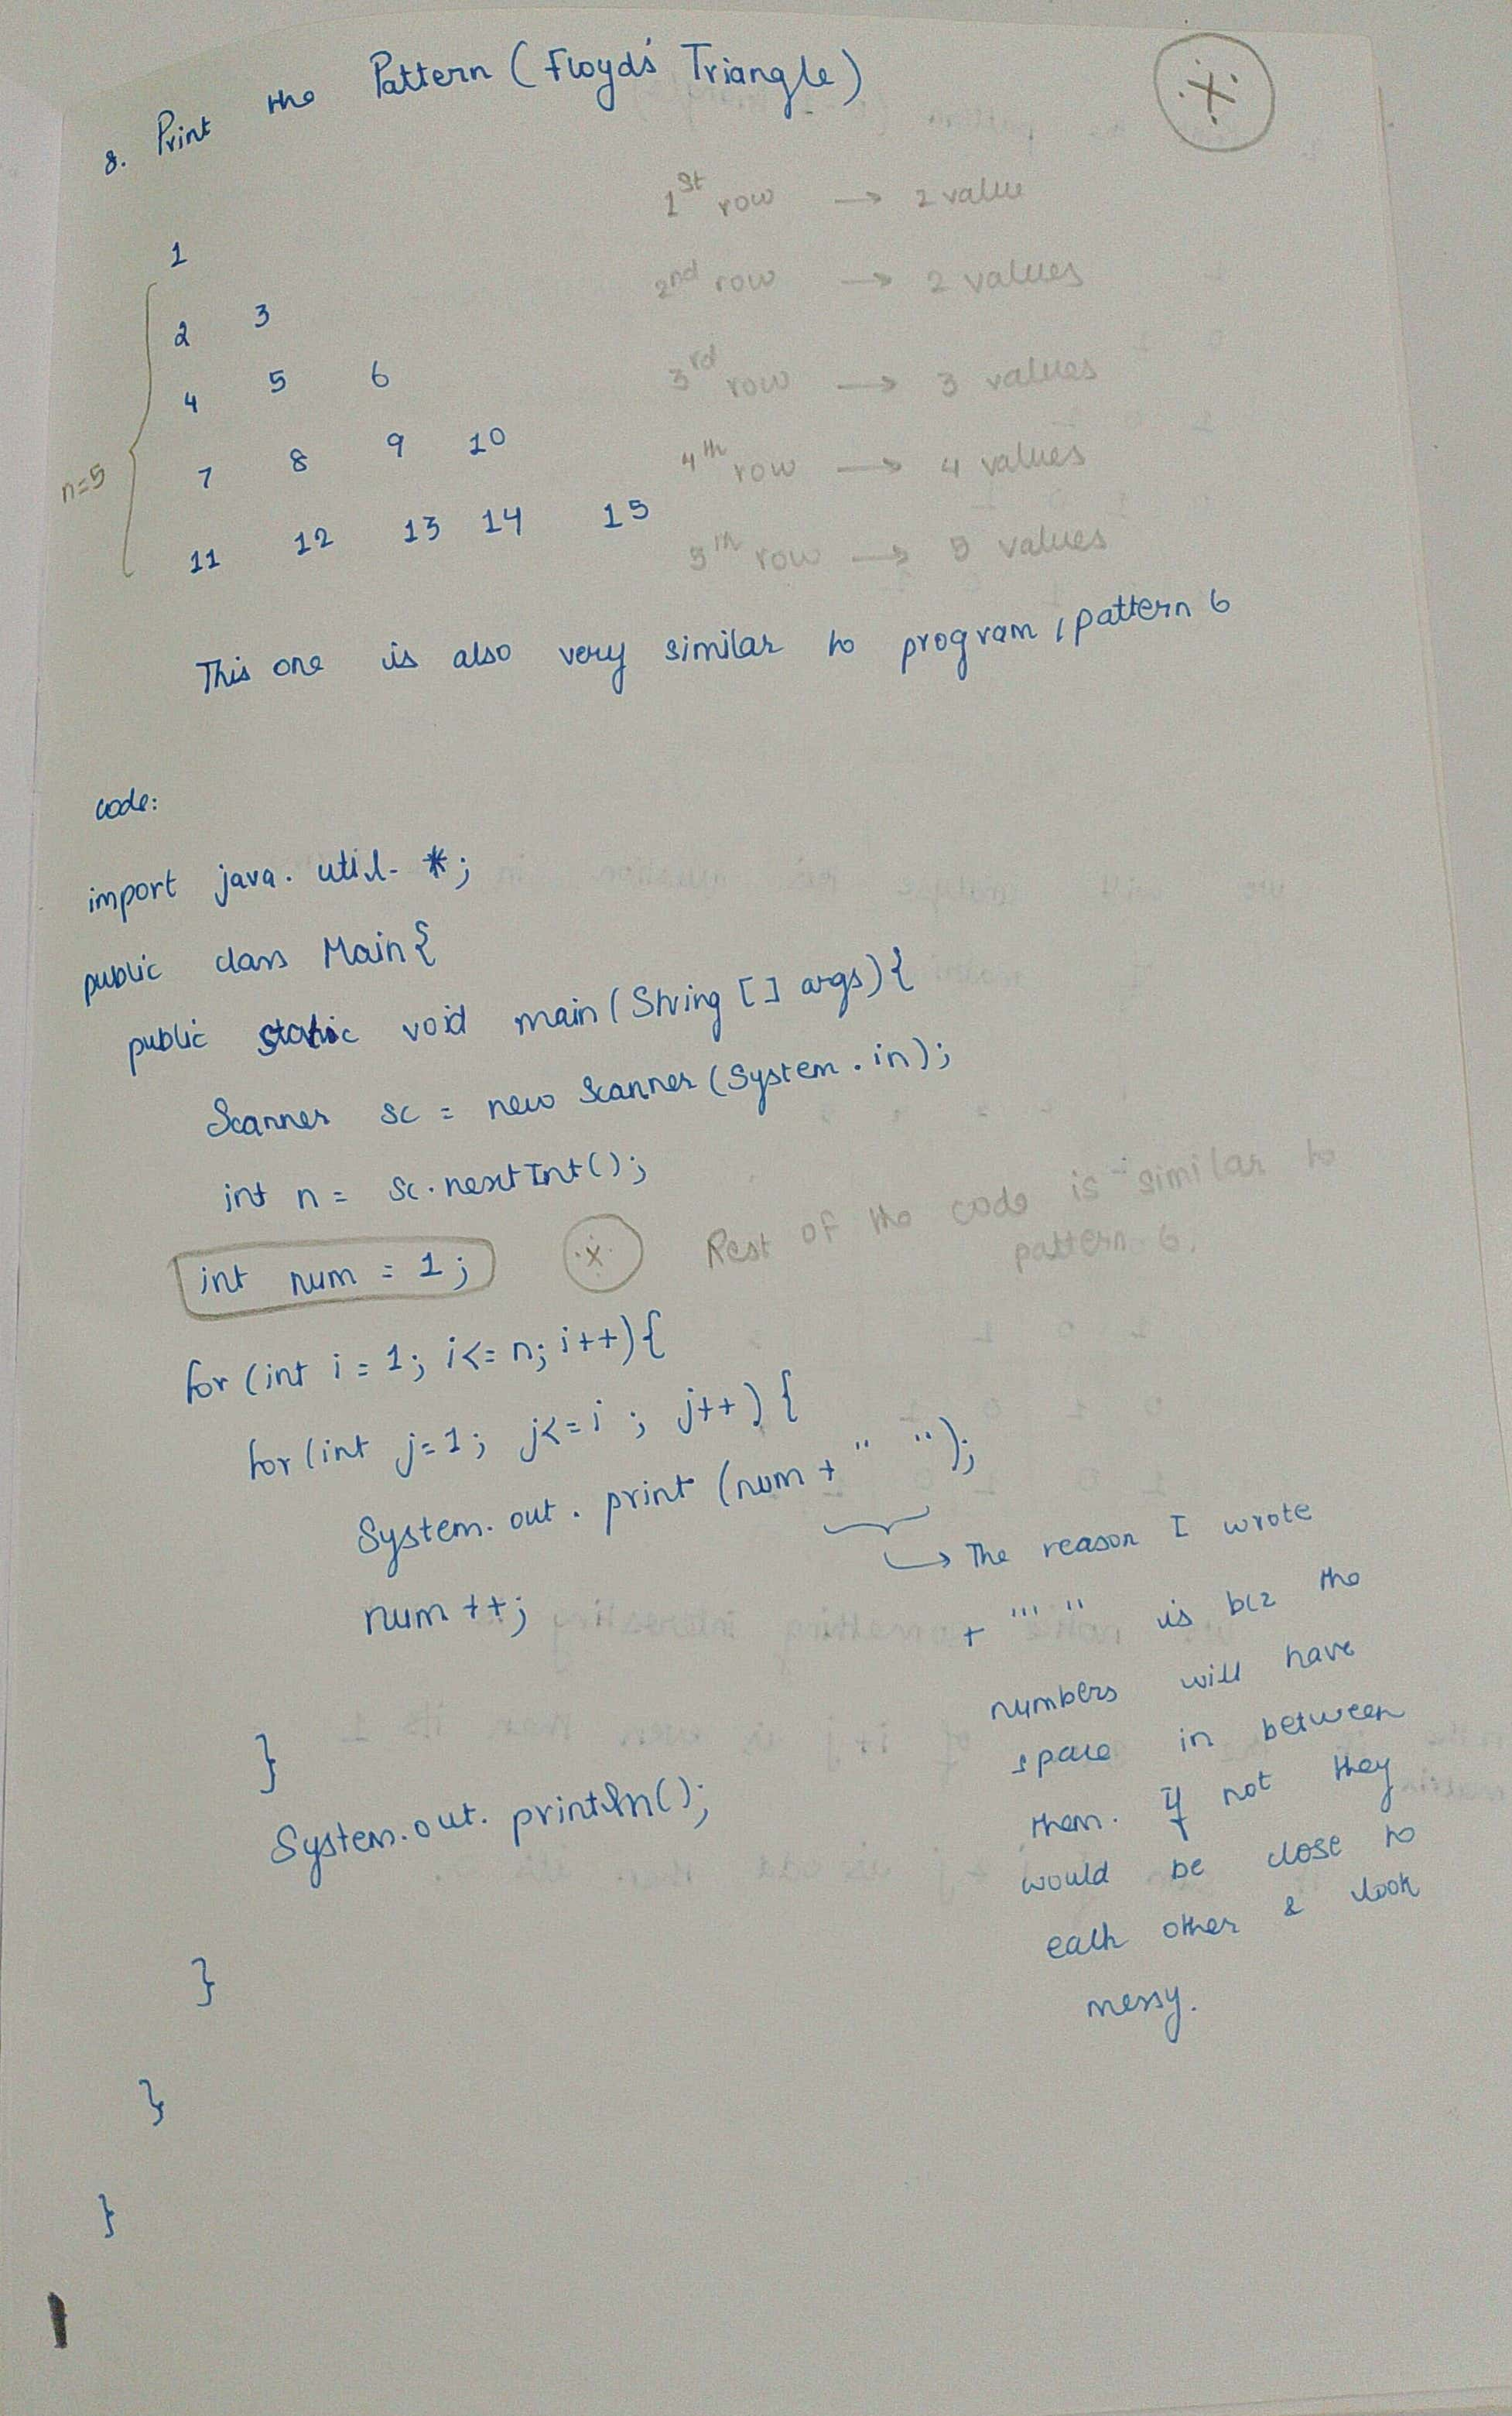 8. Print the Pattern (Floyd's Triangle)
1st row → 1 value
1
2nd row → 2 values
2 3
3rd row → 3 values
4 5 6
4th row → 4 values
7 8 9 10
n=5
5th row → 5 values
11 12 13 14 15
This one is also very similar to program, pattern 6
code:
import java.util.*;
public class Main{
public static void main(String [] args){
Scanner sc = new Scanner(System.in);
int n = sc.nextInt();
int num = 1;
Rest of the code is similar to
pattern 6.
for (int i = 1; i<= n; i++){
for (int j=1; j<=i; j++){
System.out.print (num + " ");
→ The reason I wrote
num ++;
+ "" " is bcz the
numbers will have
space in between
}
them. If not they
System.out.println();
would be close to
each other & look
messy.
}
}
}